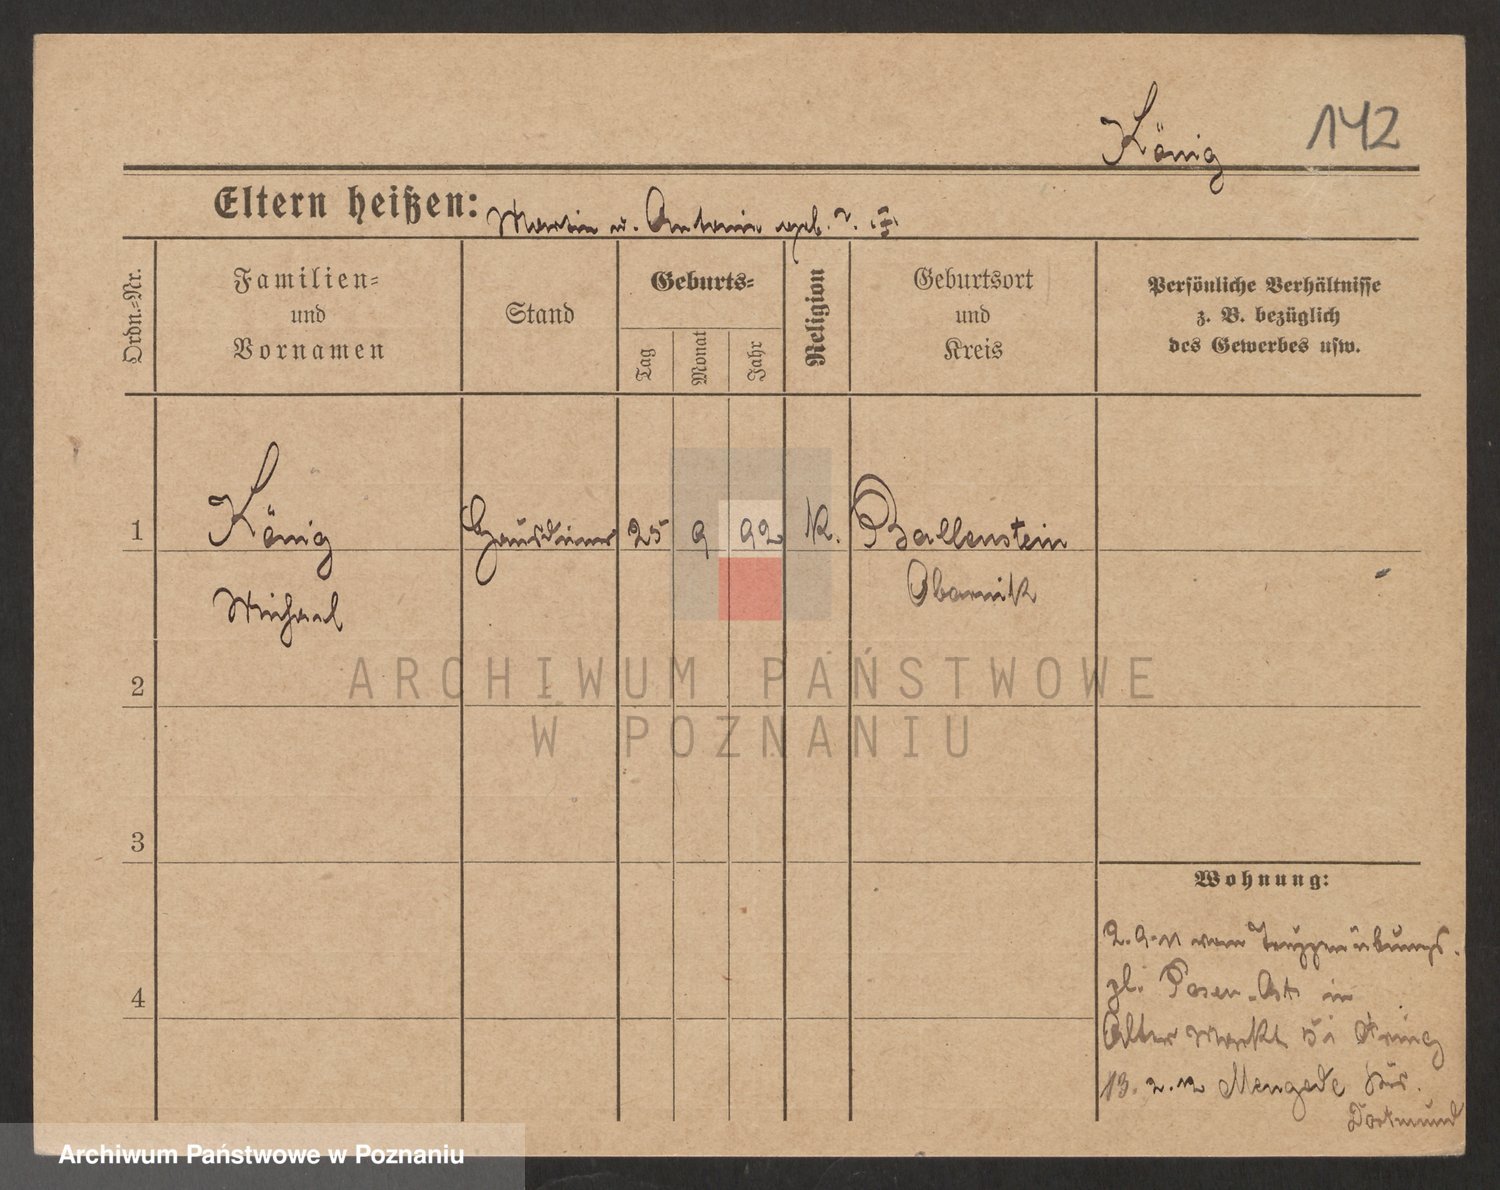 König 142
Eltern heißen: Martin u. Antonie geb. ?.
Ordn.-Nr.
Familien-
und
Vornamen
Stand
Geburts-
Tag
Monat
Jahr
Religion
Geburtsort
und
Kreis
Persönliche Verhältnisse
z. B. bezüglich
des Gewerbes usw.
1 König Hausdiener 25 9 92 K. Ballenstein
Michael Obornik
2
ARCHIWUM PAŃSTWOWE
W POZNANIU
3
Wohnung:
2.9.11 vom Truppenübungs-
pl. Posen-Ost in
Alter Markt 51
4
13.2.12 Mengede Kr.
Dortmund
Archiwum Państwowe w Poznaniu